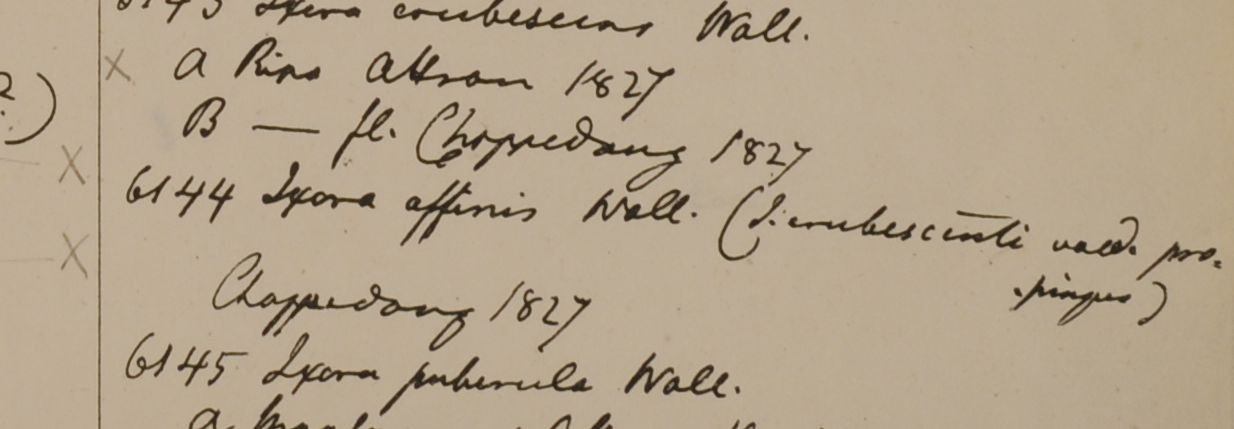 6143 Ixora erubescens Wall.
A Ripa Attran 1827
B — fl. Chappedong 1827
6144 Ixora affinis Wall. (I. erubescenti valde pro-
pinqua)
Chappedong 1827
6145 Ixora puberula Wall.